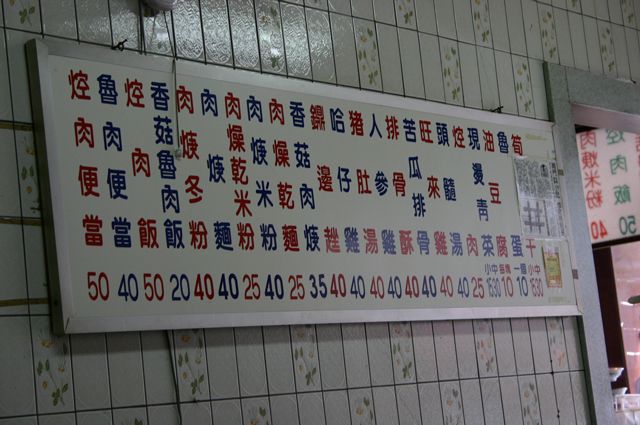 焢肉便當 50
魯肉便當 40
焢肉飯 50
香菇魯肉飯 20
肉焿冬粉 40
肉焿麵 40
肉燥乾米粉 25
肉焿米粉 40
肉燥乾麵 25
香菇肉焿 35
邊趖 40
哈仔雞 40
豬肚湯 40
人參雞 40
排骨酥 40
苦瓜排骨 40
旺來雞 40
頭髓湯 40
焢肉 25
現燙青菜 小中 15 30
油豆腐 每塊 10
魯蛋 一個 10
筍干 小中 15 30
肉焿米粉 40
焢肉飯 50